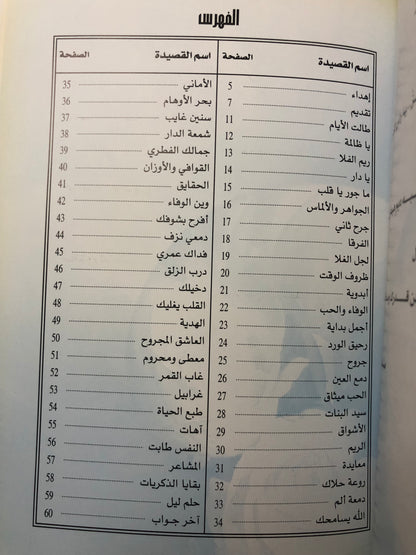 الفهرس
اسم القصيدة الصفحة
إهداء 5
تقديم 7
طالت الأيام 11
يا ظالمة 12
ريم الفلا 13
يا دار 14
ما جور يا قلب 15
الجواهر والألماس 16
جرح ثاني 17
الفرقا 18
لجل الغلا 19
ظروف الوقت 20
أبدوية 21
الوفاء والحب 22
أجمل بداية 23
رحيق الورد 24
جروح 25
دمع العين 26
الحب ميثاق 27
سيد البنات 28
الأشواق 29
الريم 30
معايدة 31
روعة حلاك 32
دمعة ألم 33
الله يسامحك 34
اسم القصيدة الصفحة
الأماني 35
بحر الأوهام 36
سنين غايب 37
شمعة الدار 38
جمالك الفطري 39
القوافي والأوزان 40
الحقايق 41
وين الوفاء 42
أفرح بشوفك 43
دمعي نزف 44
فداك عمري 45
درب الزلق 46
دخيلك 47
القلب يغليك 48
الهدية 49
العاشق المجروح 50
معطى ومحروم 51
غاب القمر 52
غرابيل 53
طبع الحياة 54
آهات 55
النفس طابت 56
المشاعر 57
بقايا الذكريات 58
حلم ليل 59
آخر جواب 60